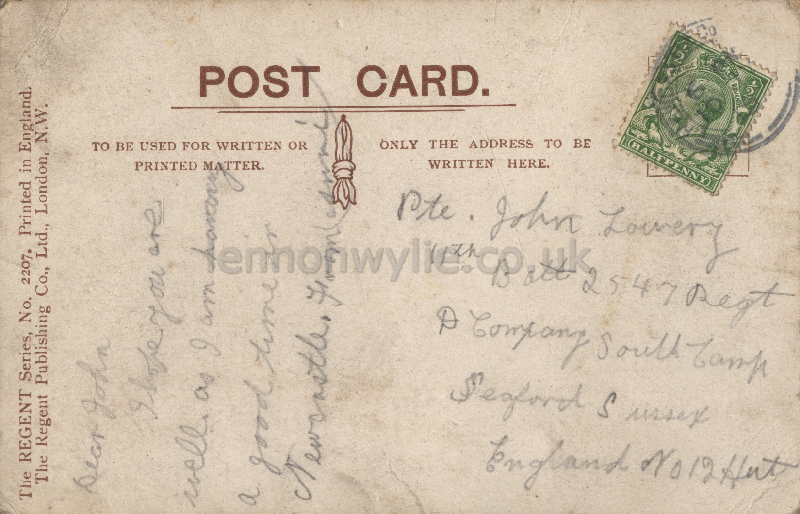 The REGENT Series, No. 2207. Printed in England.
The Regent Publishing Co., Ltd., London, N.W.
POST CARD.
TO BE USED FOR WRITTEN OR
PRINTED MATTER.
ONLY THE ADDRESS TO BE
WRITTEN HERE.
½ ½
HALFPENNY
Dear John
I hope you are
well as I am having
a good time in
Newcastle. From
Pte. John Lowery
11th Batt 2547 Regt
D Company South Camp
Seaford Sussex
England No 12 Hut
lennonwylie.co.uk